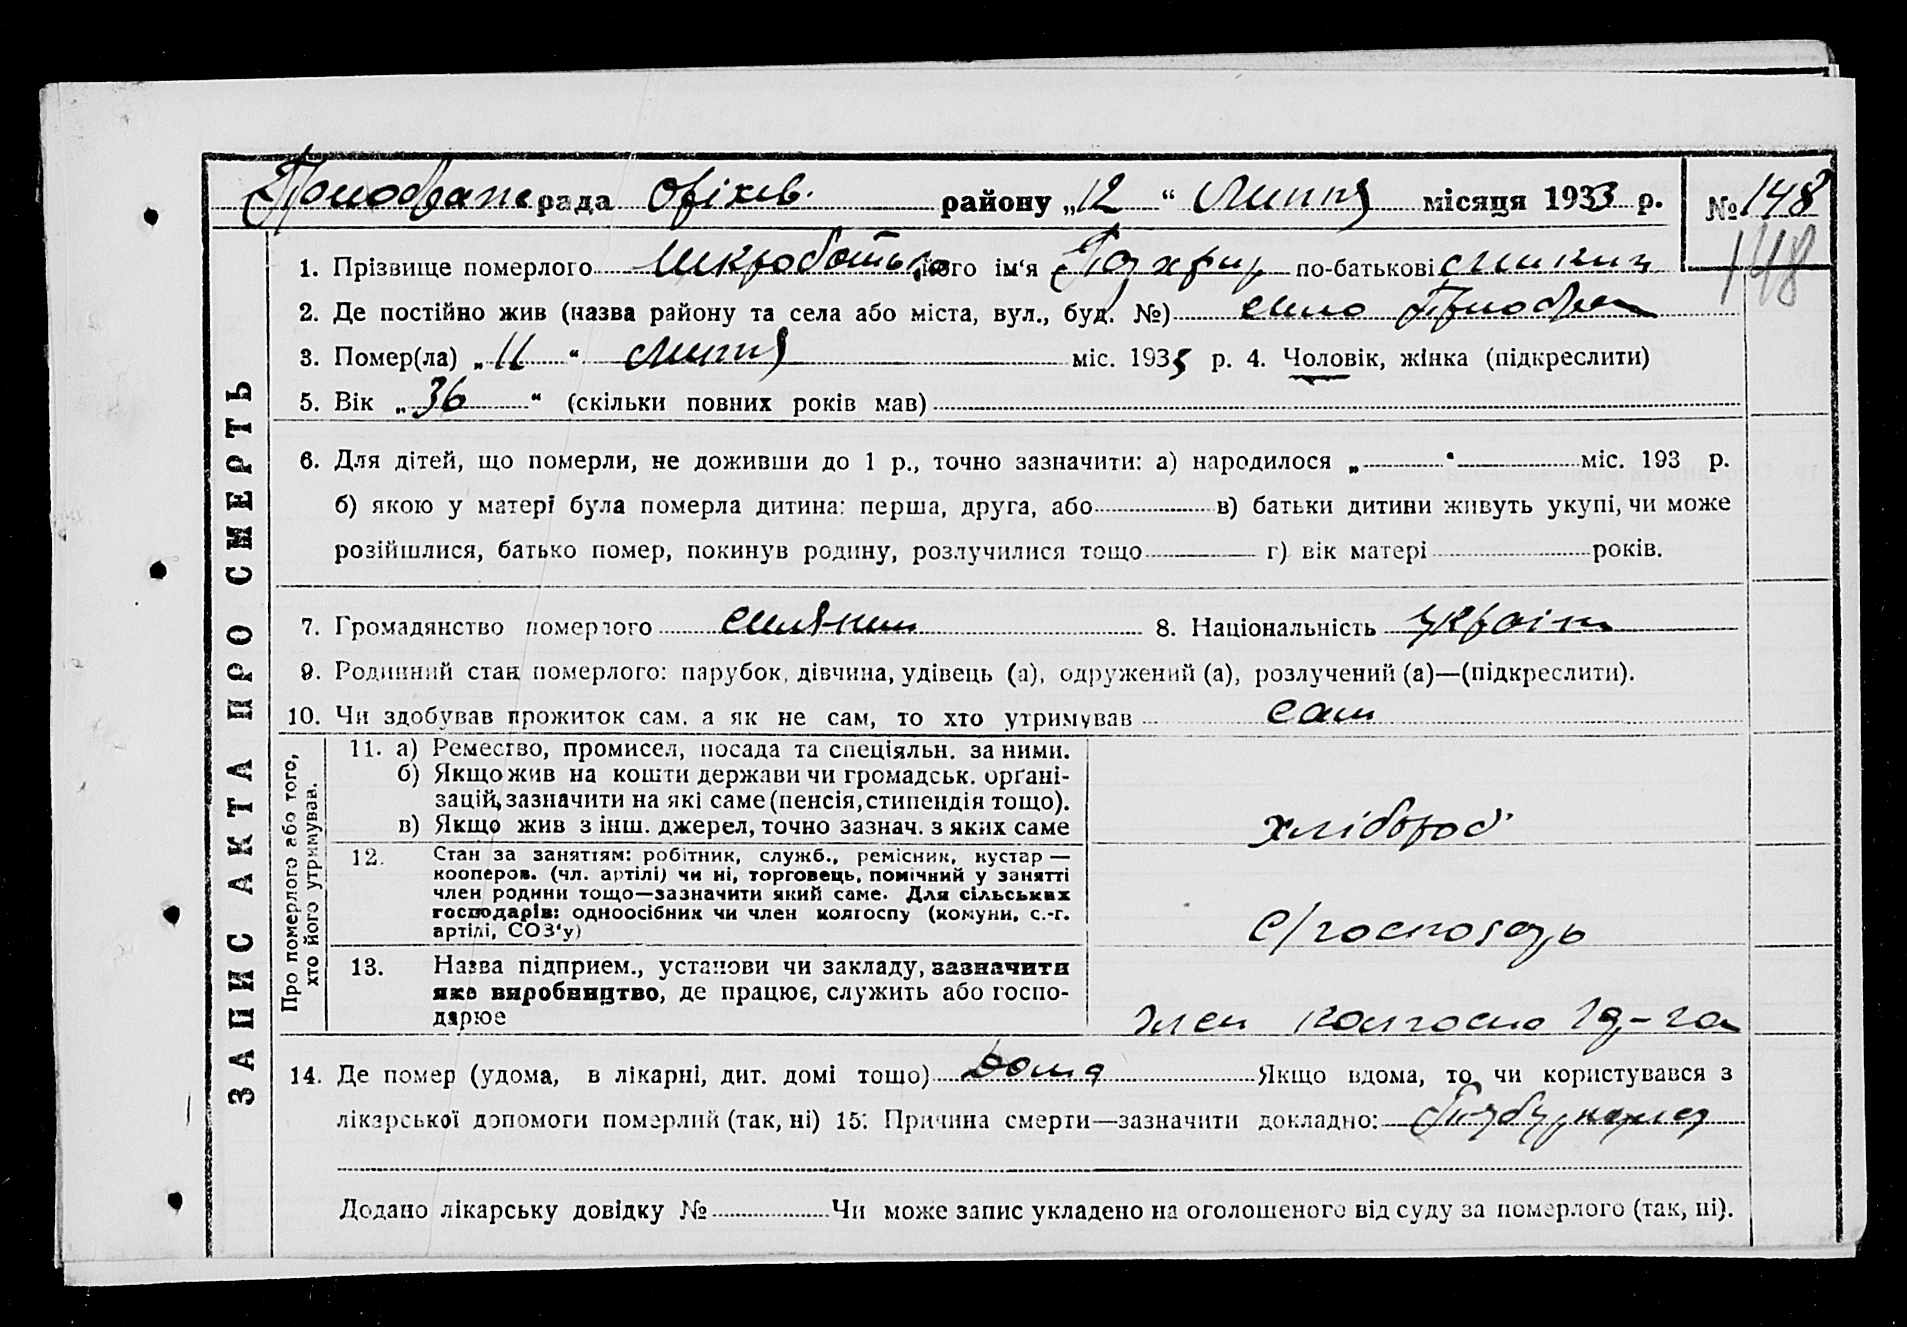 рада Оріхів. району „12“ Липня місяця 1933 р. № 148
148
ЗАПИС АКТА ПРО СМЕРТЬ
1. Прізвище померлого його ім'я по-батькові
2. Де постійно жив (назва району та села або міста, вул., буд. №) село Приобра
3. Помер(ла) „11“ липня міс. 1933 р. 4. Чоловік, жінка (підкреслити)
5. Вік „36“ (скільки повних років мав)
6. Для дітей, що померли, не доживши до 1 р., точно зазначити: а) народилося „ “ міс. 193 р.
б) якою у матері була померла дитина: перша, друга, або в) батьки дитини живуть укупі, чи може
розійшлися, батько помер, покинув родину, розлучилися тощо г) вік матері років.
7. Громадянство померлого селянин 8. Національність україн
9. Родинний стан померлого: парубок, дівчина, удівець (а), одружений (а), розлучений (а)—(підкреслити).
10. Чи здобував прожиток сам, а як не сам, то хто утримував сам
Про померлого або того,
хто його утримував.
11. а) Ремество, промисел, посада та спеціяльн. за ними.
б) Якщо жив на кошти держави чи громадськ. органі-
зацій, зазначити на які саме (пенсія, стипендія тощо).
в) Якщо жив з інш. джерел, точно зазнач. з яких саме
хлібороб
12. Стан за заняттям: робітник, служб., ремісник, кустар —
кооперов. (чл. артілі) чи ні, торговець, помічний у занятті
член родини тощо—зазначити який саме. Для сільських
господарів: одноосібник чи член колгоспу (комуни, с.-г.
артілі, СОЗ'у)
с/господарь
13. Назва підприєм., установи чи закладу, зазначити
яке виробництво, де працює, служить або госпо-
дарює
член колгоспа
14. Де помер (удома, в лікарні, дит. домі тощо) дома Якщо вдома, то чи користувався з
лікарської допомоги померлий (так, ні) 15. Причина смерти—зазначити докладно:
Додано лікарську довідку № Чи може запис укладено на оголошеного від суду за померлого (так, ні).